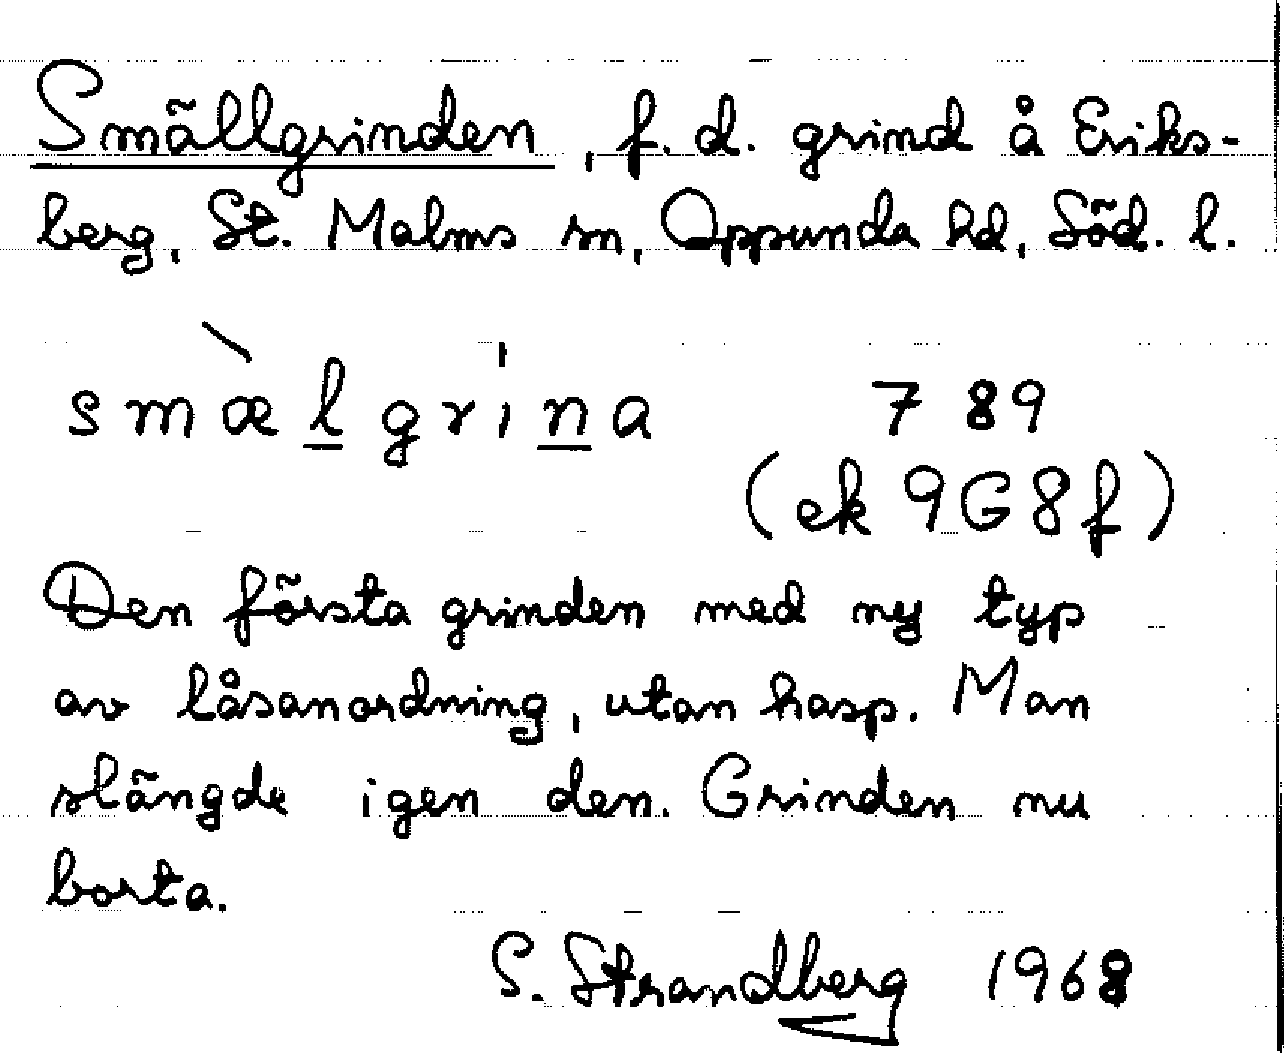 Smällgrinden, f.d. grind å Eriks-
berg, St. Malms sn, Oppunda hd, Söd. l.
smæ̀lgrína 7 89
(ek 9G8f)
Den första grinden med ny typ
av låsanordning, utan hasp. Man
slängde igen den. Grinden nu
borta.
S. Strandberg 1968